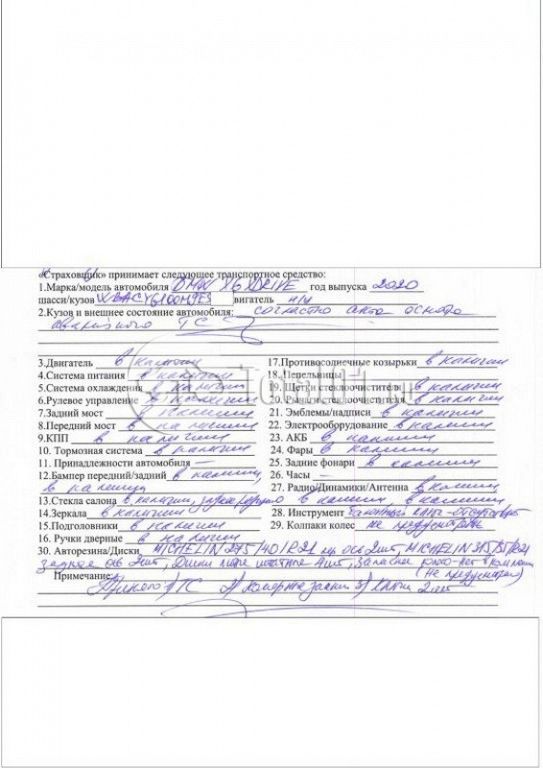 «Страховщик» принимает следующее транспортное средство:
1.Марка/модель автомобиля BMW X6 XDRIVE год выпуска 2020
шасси/кузов вигатель н/у
2.Кузов и внешнее состояние автомобиля: согласно акта осмотра
аварийного ТС
3.Двигатель в наличии
4.Система питания в наличии
5.Система охлаждения в наличии
6.Рулевое управление в наличии
7.Задний мост в наличии
8.Передний мост в наличии
9.КПП в наличии
10. Тормозная система в наличии
11. Принадлежности автомобиля —
12.Бампер передний/задний в наличии,
в наличии
13.Стекла салона в наличии,
14.Зеркала в наличии
15.Подголовники в наличии
16. Ручки дверные в наличии
17.Противосолнечные козырьки в наличии
18. Пепельницы —
19. Щетки стеклоочистителя в наличии
20. Рычаги стеклоочистителя в наличии
21. Эмблемы/надписи в наличии
22. Электрооборудование в наличии
23. АКБ в наличии
24. Фары в наличии
25. Задние фонари в наличии
26. Часы —
27. Радио/Динамики/Антенна в наличии
в наличии, в наличии
28. Инструмент балонный ключ-отсутствует
29. Колпаки колес не предусмотрены
30. Авторезина/Диски MICHELIN 275/40/R21 пер ось 2шт, MICHELIN 315/35/R21
задняя ось 2шт, Диски литые штатные 4шт, Запасное колесо-нет в комплекте
(Не предусмотрен)
Примечание: ТС Ключи 2шт